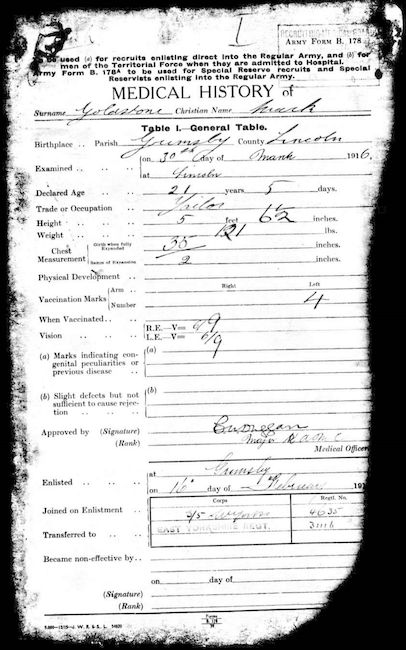 ARMY FORM B. 178
to be used (a) for recruits enlisting direct into the Regular Army, and (b) for
men of the Territorial Force when they are admitted to Hospital.
Army Form B. 178A to be used for Special Reserve recruits and Special
Reservists enlisting into the Regular Army.
MEDICAL HISTORY of
Surname Goldstone Christian Name Mark
Table I.—General Table.
Birthplace .. Parish Grimsby County Lincoln
Examined .. .. .. .. on 30th day of March 1916,
at Lincoln
Declared Age .. .. 21 years 5 days.
Trade or Occupation ..
Height .. .. .. 5 feet 6½ inches.
Weight .. .. .. 121 lbs.
Chest Measurement Girth when fully Expanded 35 inches.
Range of Expansion 2 inches.
Physical Development ..
Right Left
Vaccination Marks Arm ..
Number 4
When Vaccinated .. ..
Vision .. .. .. R.E.—V= 6/9
L.E.—V= 6/9
(a) Marks indicating con-
genital peculiarities or
previous disease .. (a)
(b) Slight defects but not
sufficient to cause rejec-
tion .. .. .. (b)
Approved by .. (Signature)
(Rank) Major R.A.M.C
Medical Officer
Enlisted .. .. .. at Grimsby
on 16 day of February 191
Corps Regtl. No.
Joined on Enlistment .. 3/5 4635
Transferred to .. .. EAST YORKSHIRE REGT.
Became non-effective by ..
on day of
(Signature)
(Rank)
Forms
B. 178